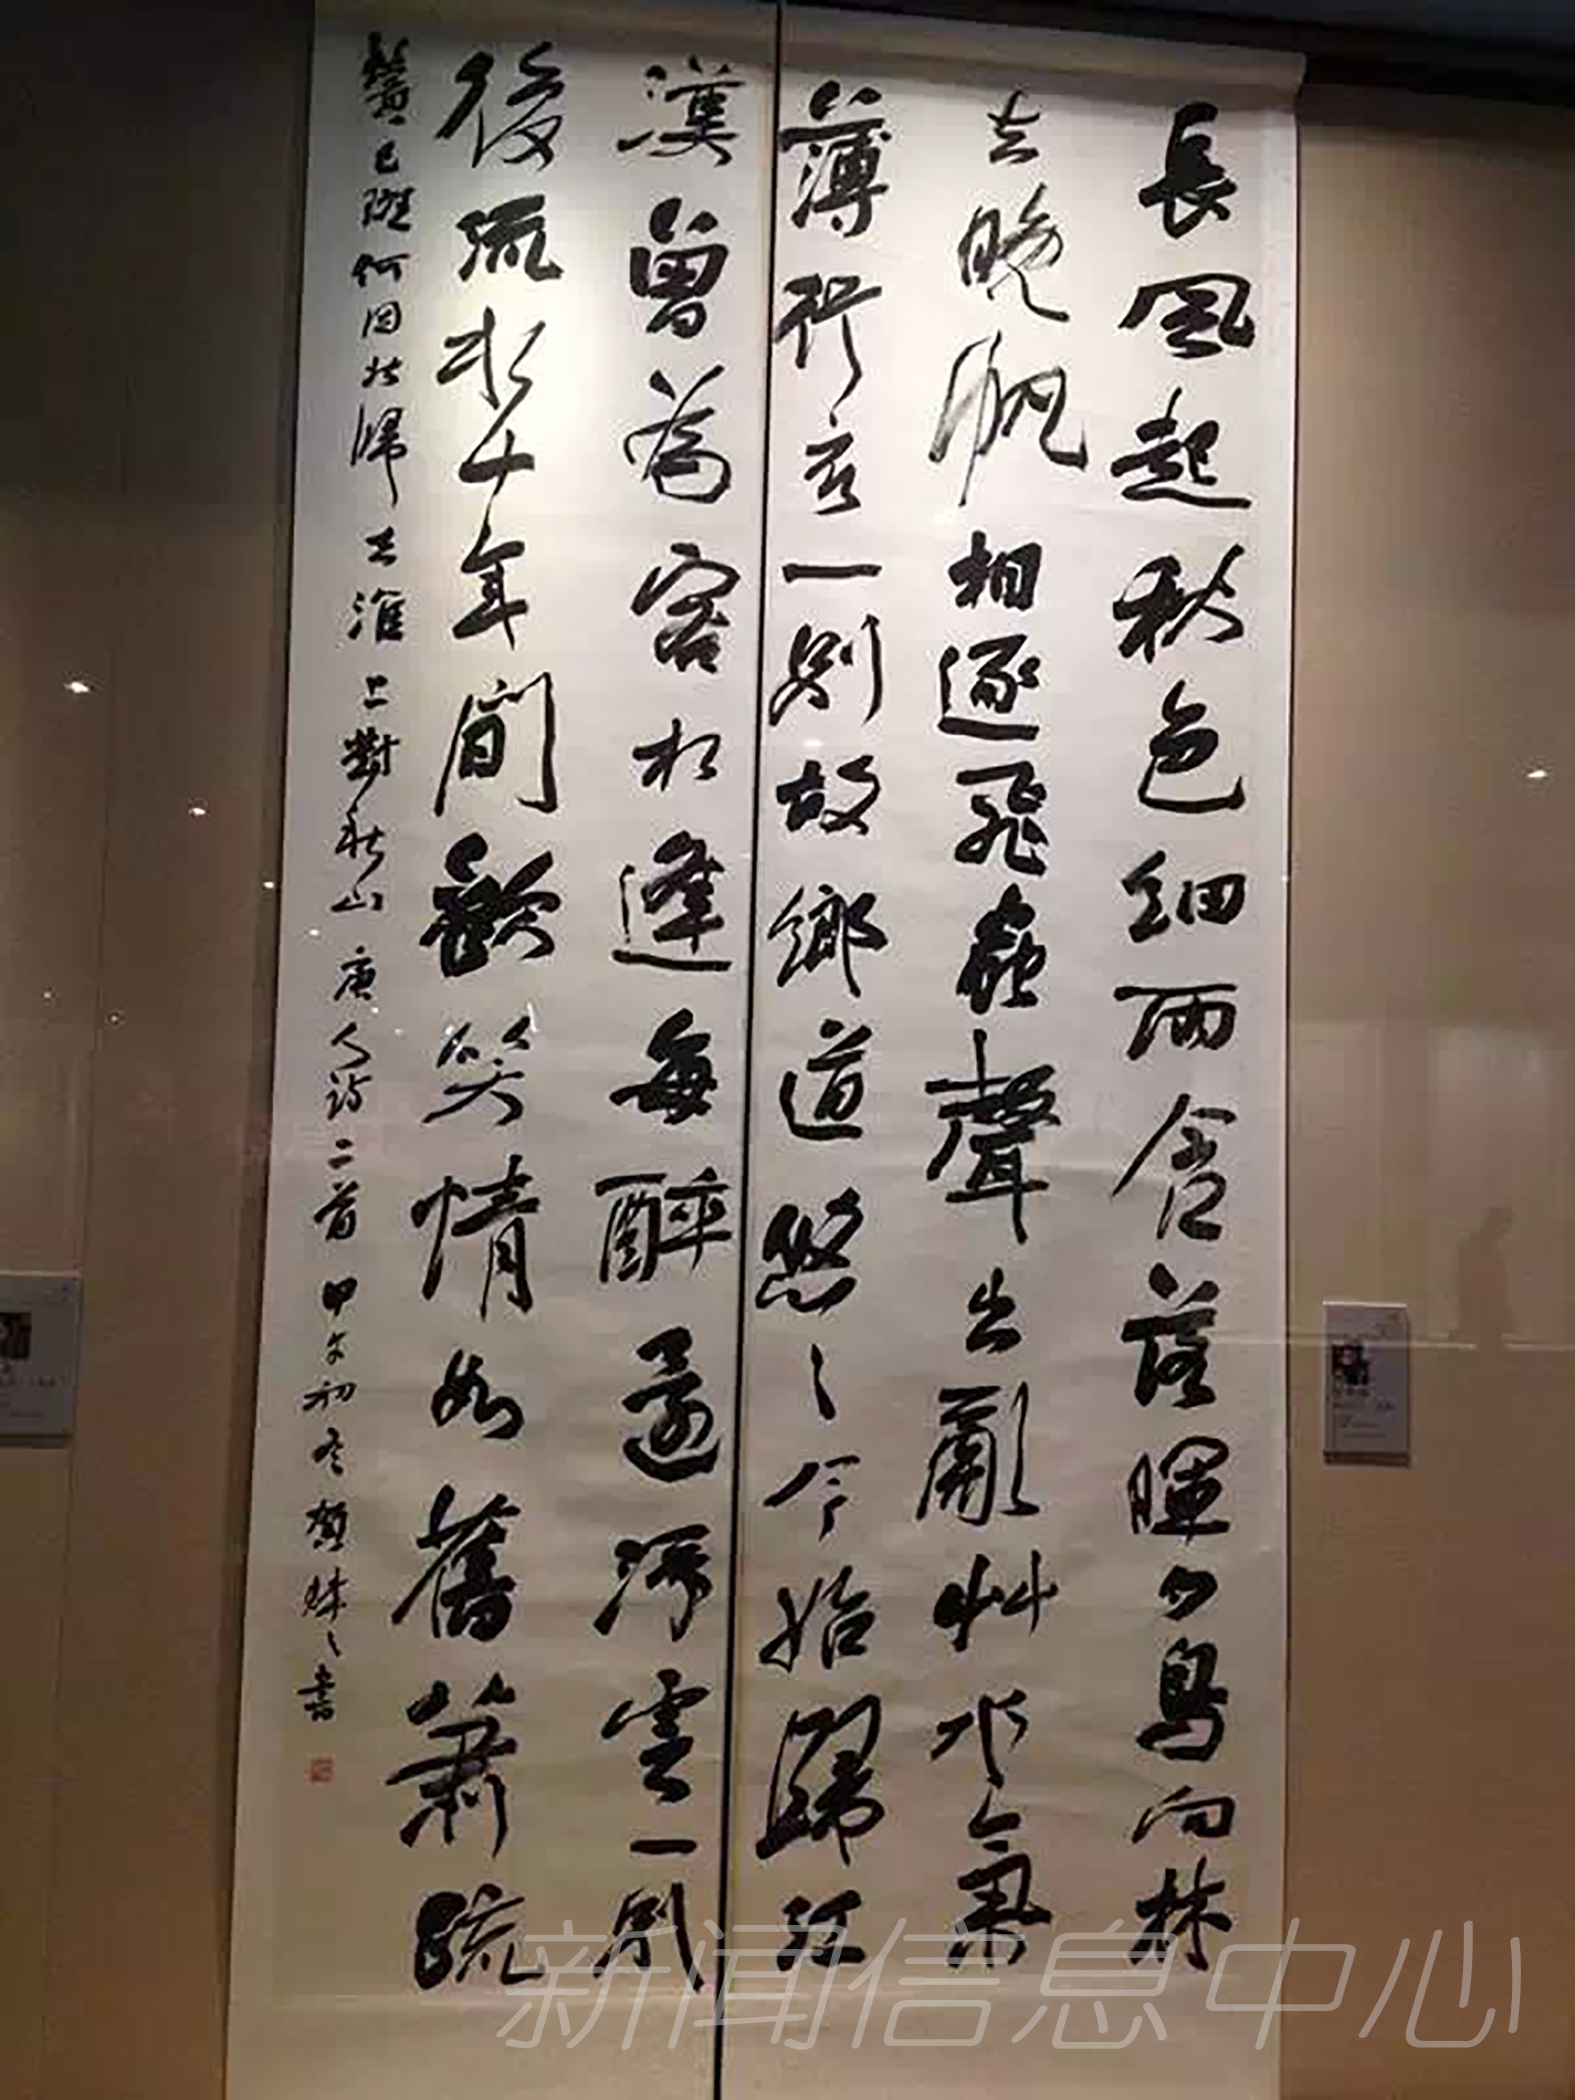 長風起秋色細雨含落暉夕鳥向林
去晚帆相逐飛蟲聲出亂艸水氣
薄行衣一別故鄉道悠々今始歸江
漢曾為客相逢每醉還浮雲一別
後流水十年間歡笑情如舊蕭疏
鬢已斑何因北歸去淮上對秋山 唐人詩二首 甲午初冬 書
新闻信息中心